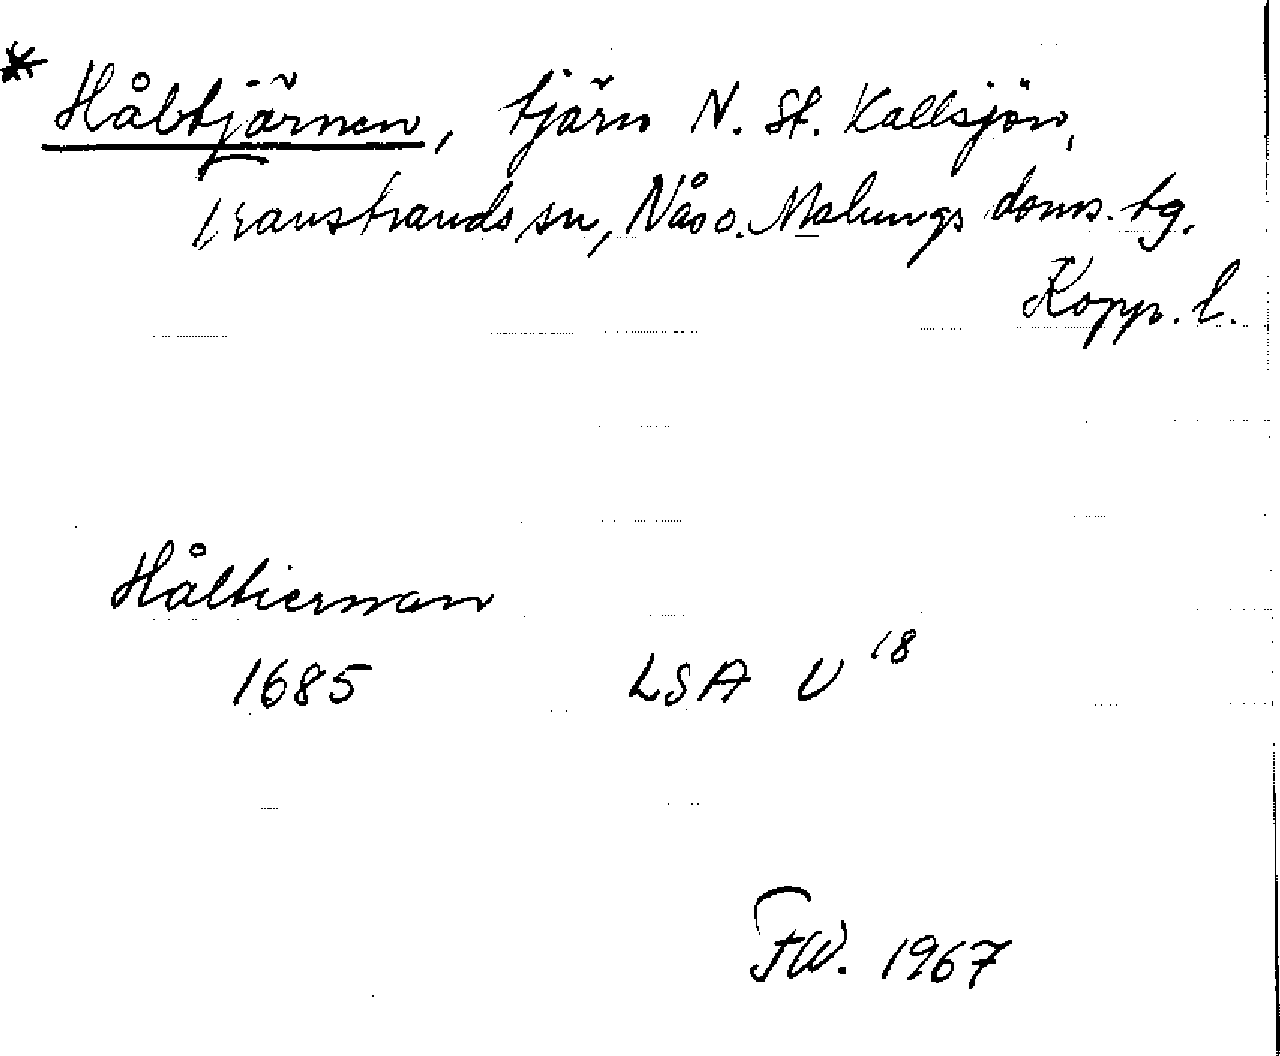 * Håltjärnen, tjärn N. St. Kallsjön,
Transtrands sn, Nås o. Malungs doms. tg.
Kopp. l.
Håltiernan
1685 LSA U 18
FW. 1967